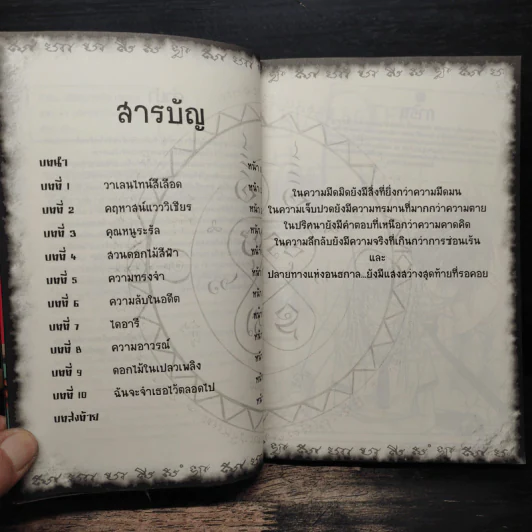 สารบัญ
บทนำ หน้า
บทที่ 1 วาเลนไทน์สีเลือด หน้า
บทที่ 2 คฤหาสน์แวววิเชียร หน้า
บทที่ 3 คุณหนูระรัล หน้า
บทที่ 4 สวนดอกไม้สีฟ้า หน้า
บทที่ 5 ความทรงจำ
บทที่ 6 ความลับในอดีต
บทที่ 7 ไดอารี่
บทที่ 8 ความอาวรณ์
บทที่ 9 ดอกไม้ในเปลวเพลิง
บทที่ 10 ฉันจะจำเธอไว้ตลอดไป
บทส่งท้าย
ในความมืดมิดยังมีสิ่งที่ยิ่งกว่าความมืดมน
ในความเจ็บปวดยังมีความทรมานที่มากกว่าความตาย
ในปริศนายังมีคำตอบที่เหนือกว่าความคาดคิด
ในความลึกลับยังมีความจริงที่เกินกว่าการซ่อนเร้น
และ
ปลายทางแห่งอนธกาล...ยังมีแสงสว่างสุดท้ายที่รอคอย